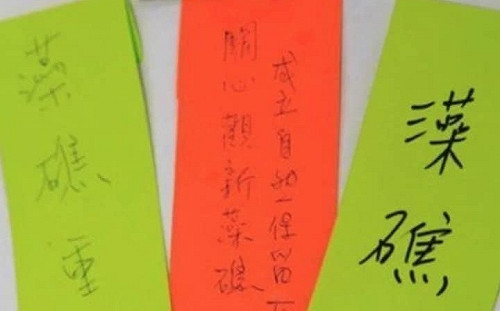 藻礁重
成立自然保留
關心觀新藻礁
藻礁